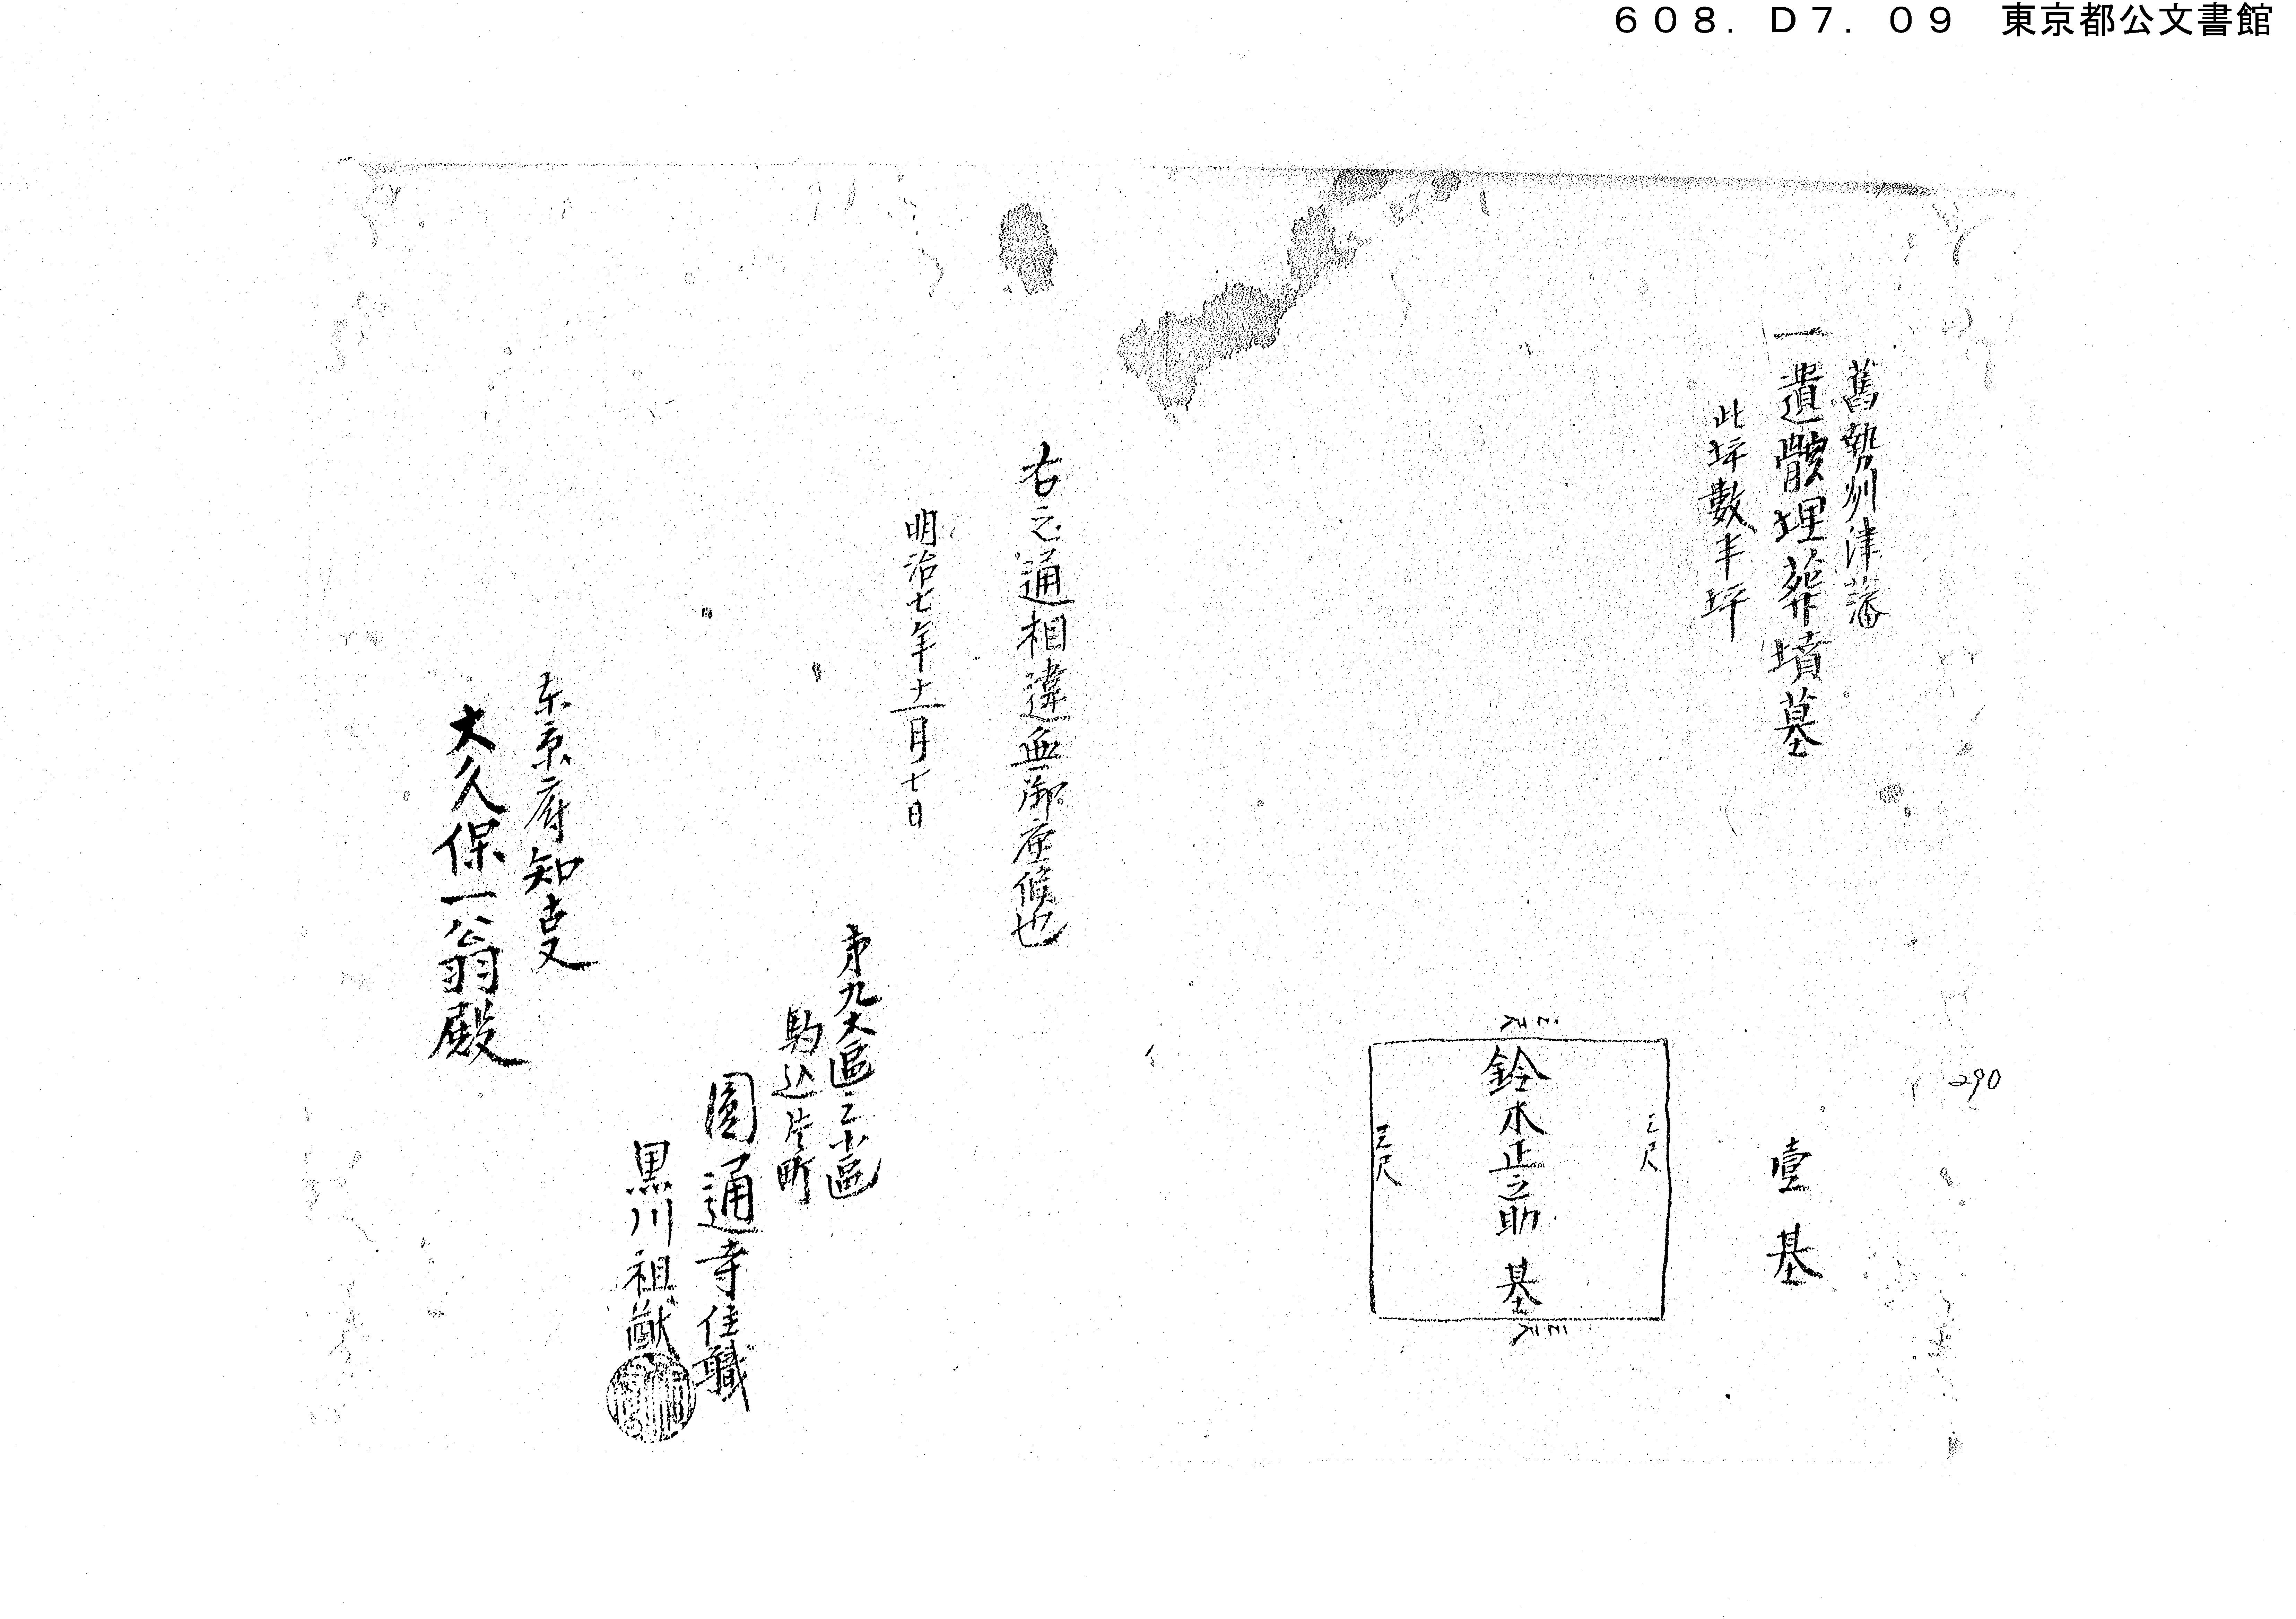 608. D7. 09 東京都公文書館
舊勢州津藩
一遺骸埋葬墳墓
壹基
此坪數半坪
三尺
三尺
鈴木正之助 基
三尺
三尺
290
右之通相違無御座候也
明治七年十二月七日
第九大區三小區
駒込片町
圓通寺住職
黒川祖猷
东京府知叓
大久保一翁殿